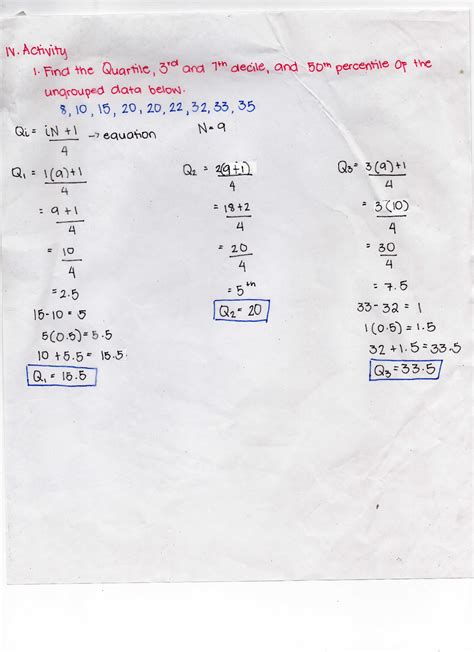 IV. Activity
1. Find the Quartile, 3rd and 7th decile, and 50th percentile of the
ungrouped data below.
8, 10, 15, 20, 20, 22, 32, 33, 35
Qi = iN+1 → equation N=9
4
Q1 = 1(9)+1
4
= 9+1
4
= 10
4
= 2.5
15-10 = 5
5(0.5) = 5.5
10 + 5.5 = 15.5
Q1 = 15.5
Q2 = 2(9+1)
4
= 18+2
4
= 20
4
= 5th
Q2 = 20
Q3 = 3(9)+1
4
= 3(10)
4
= 30
4
= 7.5
33-32 = 1
1(0.5) = 1.5
32 + 1.5 = 33.5
Q3 = 33.5